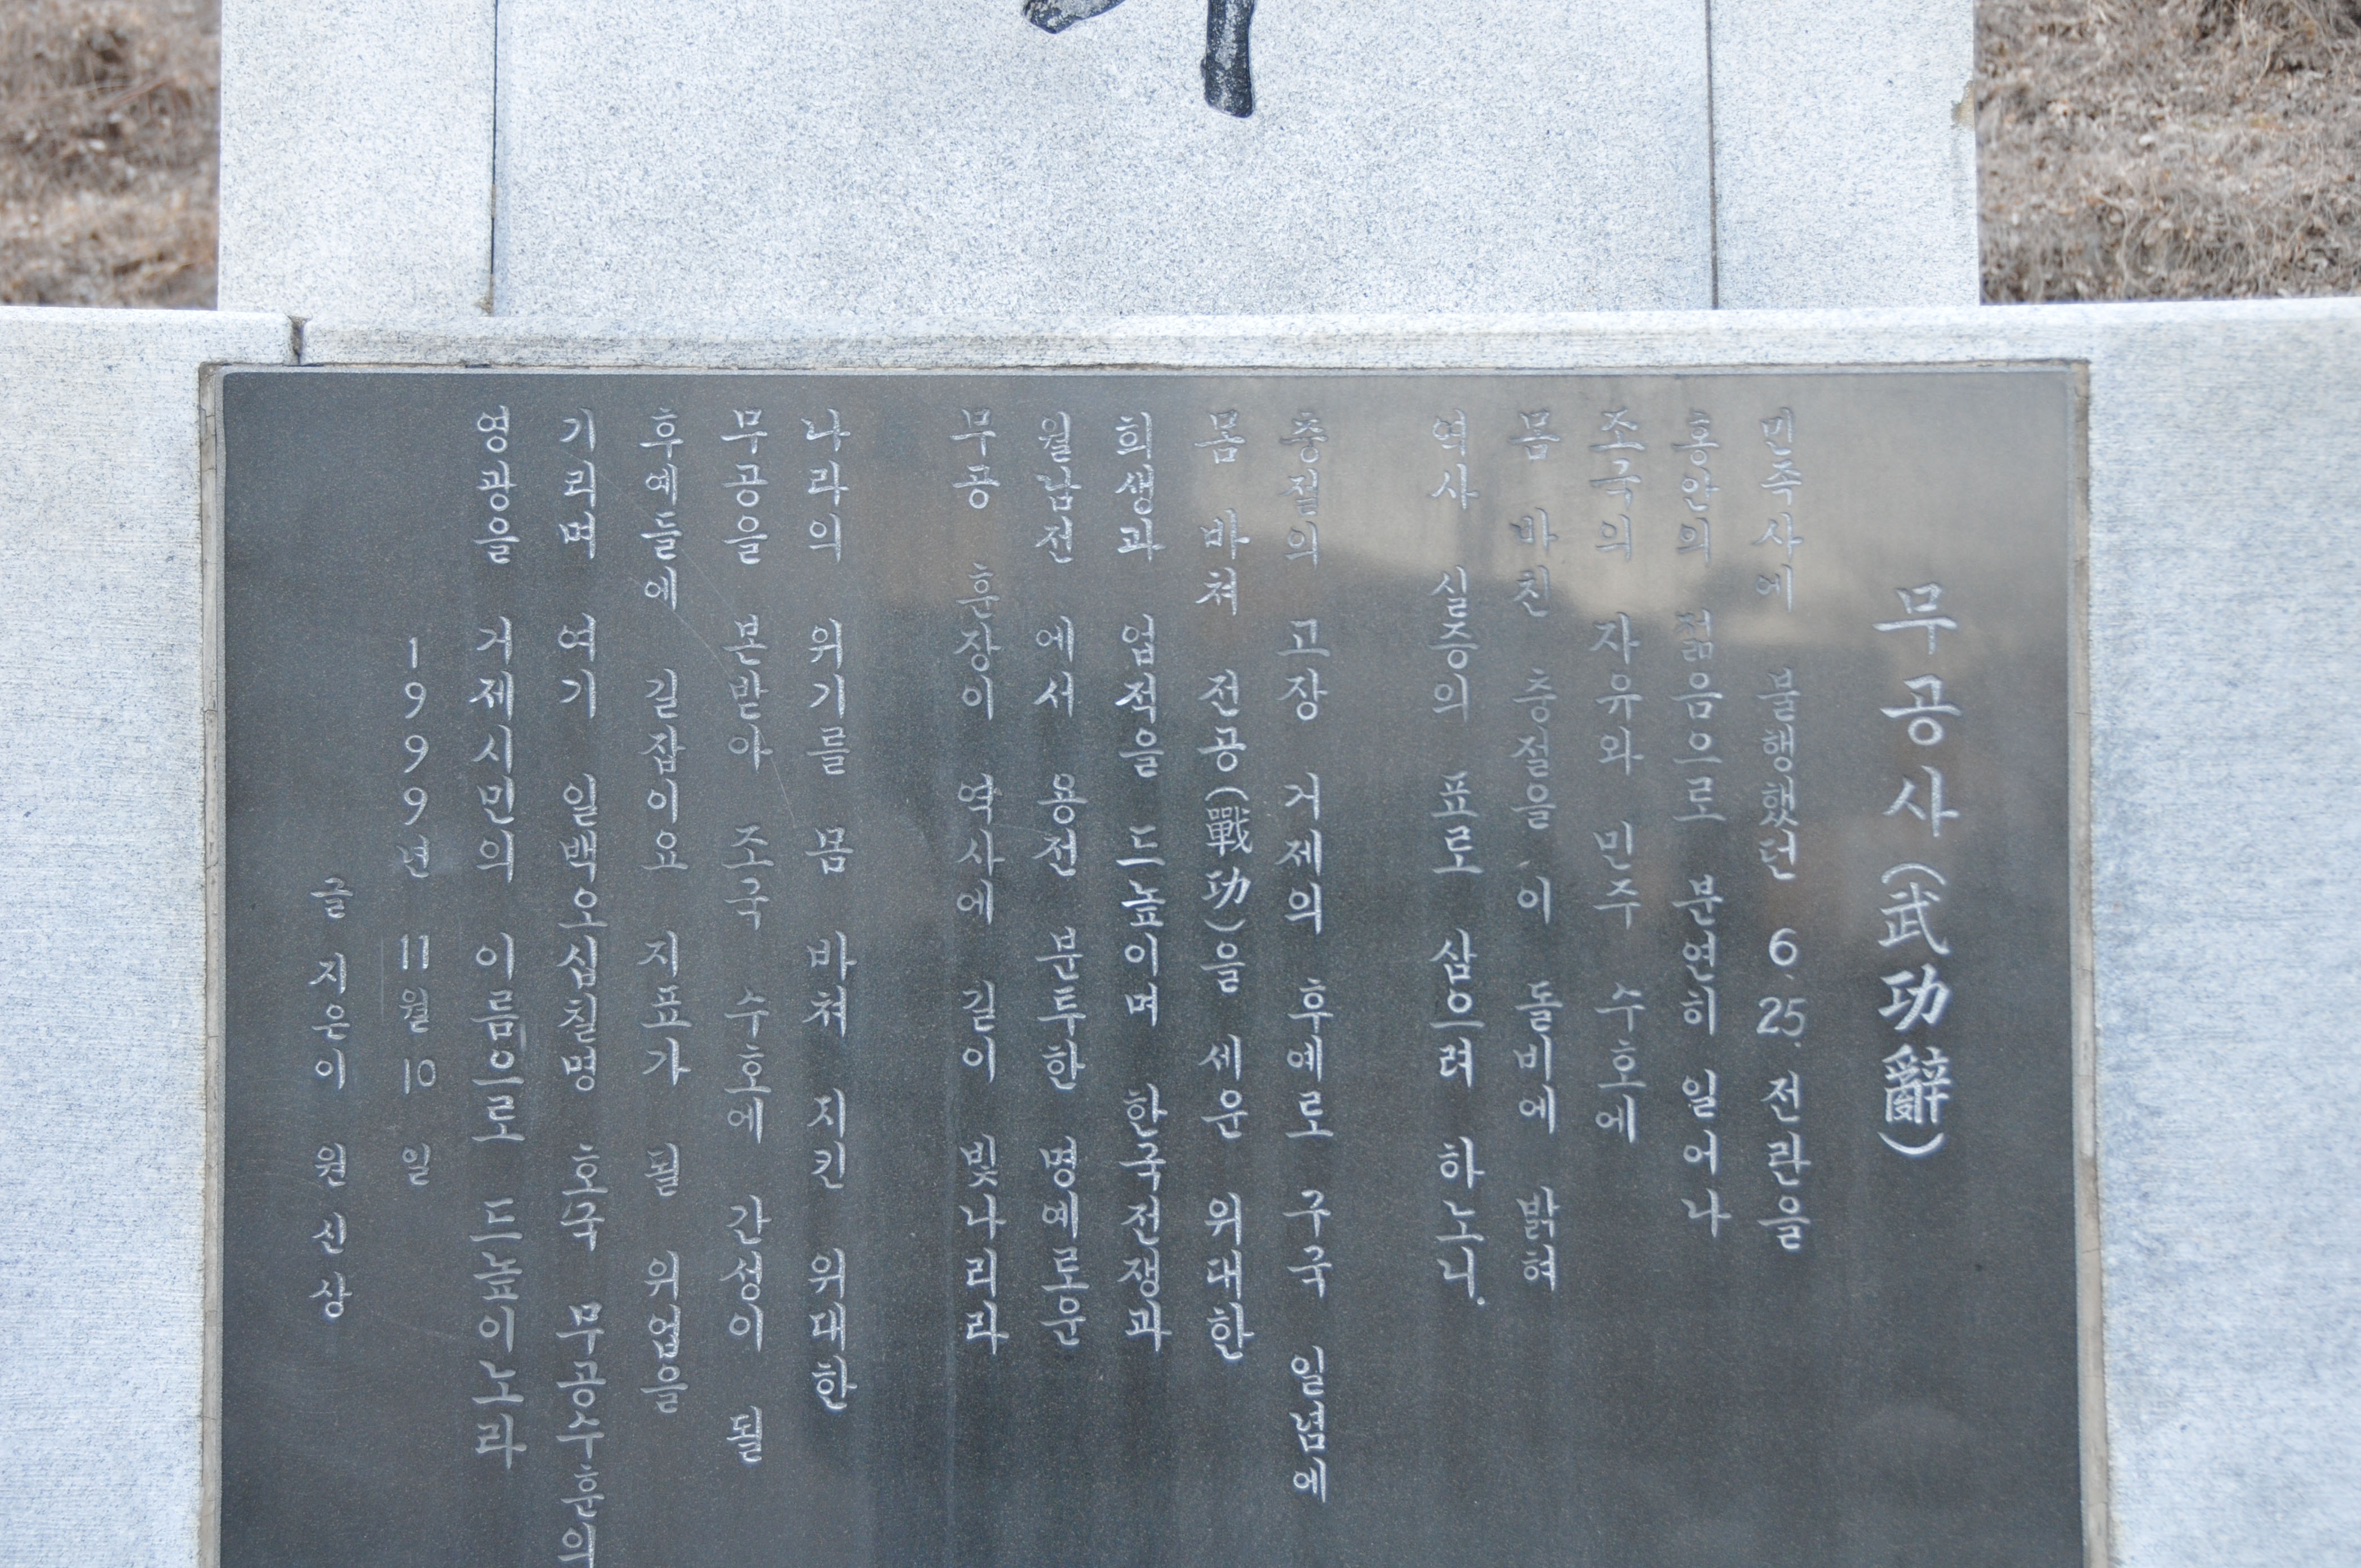 무공사(武功辭)
민족사에 불행했던 6.25. 전란을
홍안의 젊음으로 분연히 일어나
조국의 자유와 민주 수호에
몸 바친 충절을 이 돌비에 밝혀
역사 실증의 표로 삼으려 하노니.
충절의 고장 거제의 후예로 구국 일념에
몸 바쳐 전공(戰功)을 세운 위대한
희생과 업적을 드높이며 한국전쟁과
월남전 에서 용전 분투한 명예로운
무공 훈장이 역사에 길이 빛나리라
나라의 위기를 몸 바쳐 지킨 위대한
무공을 본받아 조국 수호에 간성이 될
후예들에 길잡이요 지표가 될 위업을
기리며 여기 일백오십칠명 호국 무공수훈의
영광을 거제시민의 이름으로 드높이노라
1999년 11월 10 일
글 지은이 원 신 상